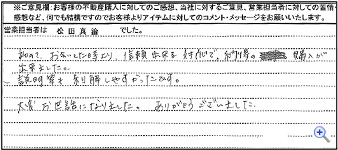 ※ご意見欄:お客様の不動産購入に対してのご感想、当社に対するご意見、営業担当者に対しての査価
感想など、何でも結構ですのでお客様よりアイテムに対してのコメント・メッセージをお願いいたします。
営業担当者は 松田真治 でした。
初めてお会いした時より、信頼出来る対応で、納得 購入が
出来ました。
説明等も判り解しやすかったです。
大変お世話になりました。ありがとうございました。